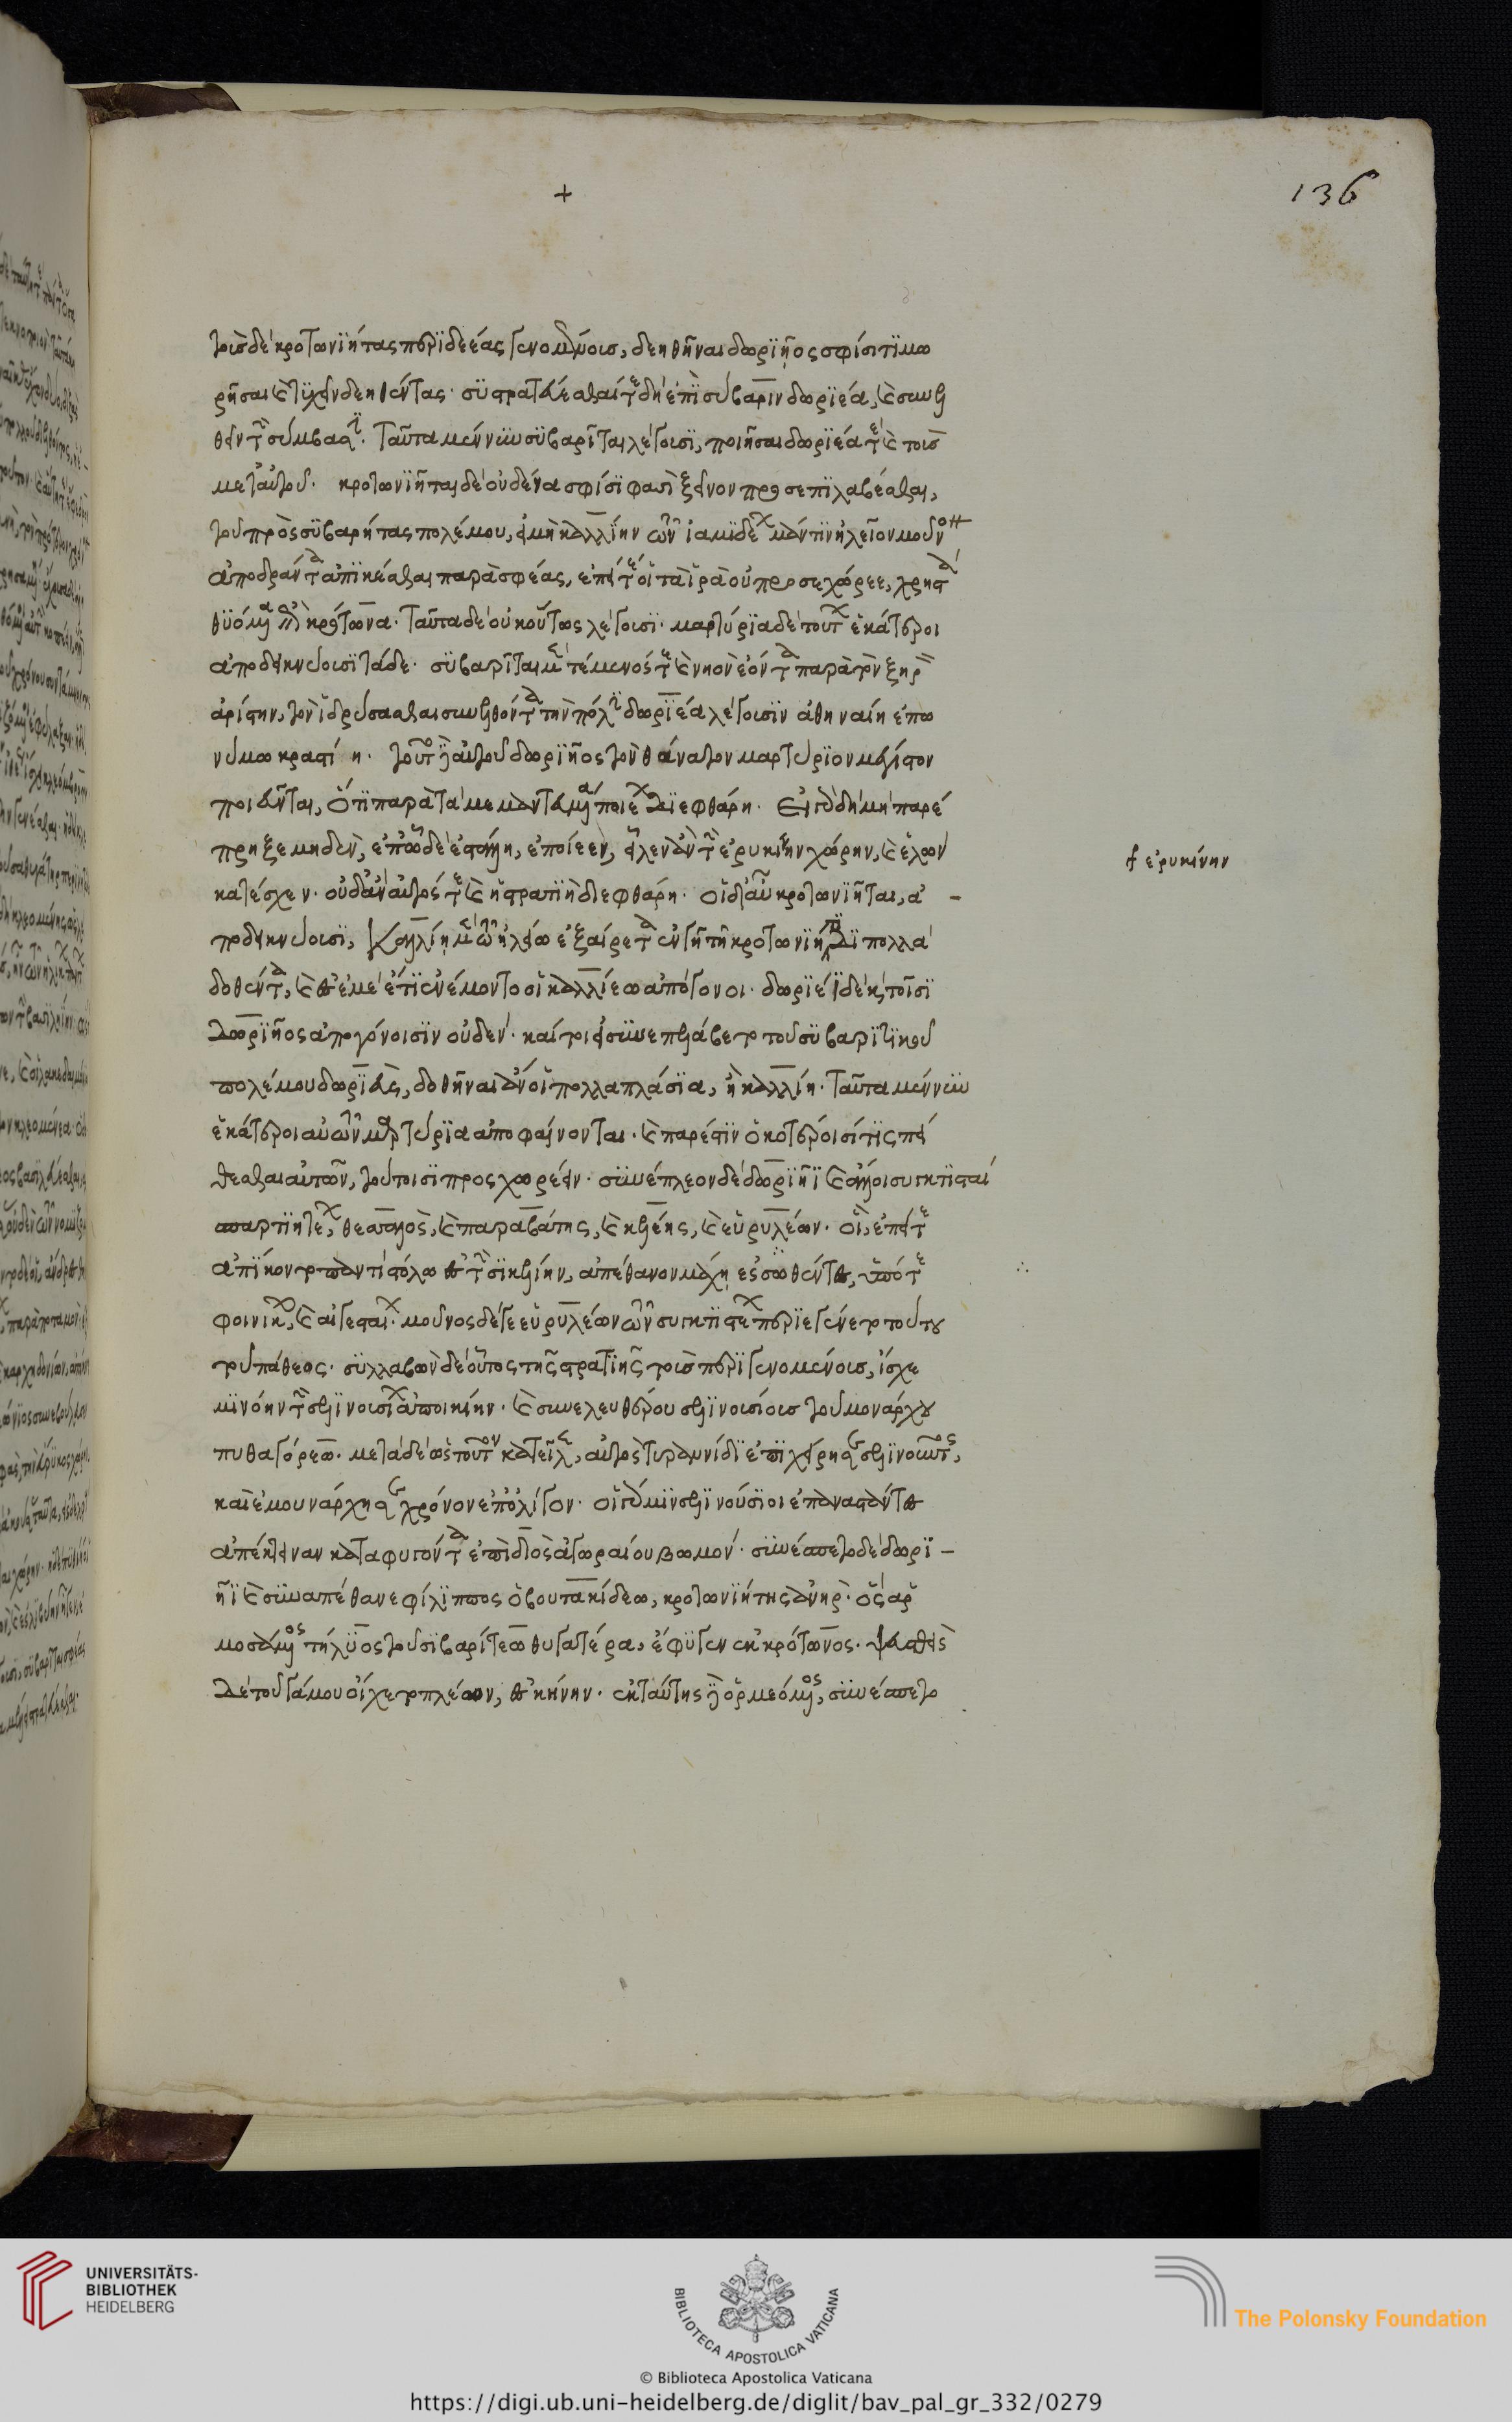 +
136
τοὺς δὲ κροτωνιήτας περιδεέας γενομένους, δεηθῆναι δωριῆος σφίσι τιμω
ρῆσαι καὶ τυχεῖν δεηθέντας· συστρατεύεσθαί τε δὴ ἐπὶ σύβαριν δωριέα, καὶ συνελ
θεῖν τὴν σύμβασιν. ταῦτα μέν νυν συβαρῖται λέγουσι, ποιῆσαι δωριέα τε καὶ τοὺς
μετ' αὐτοῦ. κροτωνιῆται δὲ οὐδένα σφίσι φασὶ ξεῖνον προσεπιλαβέσθαι,
τοῦ πρὸς συβαρήτας πολέμου, εἰ μὴ καλλίην τῶν ἰαμιδέων μάντιν ἠλεῖον μοῦνον
ἀποδράντα ἀπικέσθαι παρὰ σφέας, ἐπεί τε οἱ τὰ ἱρὰ οὐ προσεχώρεε, χρηστὰ
θυόμενα ἐπὶ κρότωνα. ταῦτα δὲ οὐκ οὕτως λέγουσι. μαρτύρια δὲ τουτέων ἑκάτεροι
ἀποδεικνύουσι τάδε. συβαρῖται μὲν τέμενός τε καὶ νηὸν ἐόντα παρὰ τὸν ξηρὸν
κράστιν, τὸν ἱδρύσασθαι συνελθόντα τὴν πόλιν δωριέα λέγουσιν ἀθηναίη ἐπω
νύμω κραστίη. τοῦτο δὲ αὐτοῦ δωριῆος τὸν θάνατον μαρτύριον μέγιστον
ποιεῦνται, ὅτι παρὰ τὰ μεμαντευμένα ποιέων διεφθάρη. εἰ γὰρ δὴ μὴ παρέ
πρηξε μηδὲν, ἐπ' ᾧ δὲ ἐστάλη, ἐποίεεν, εἷλεν ἂν τὴν ἐρυκίνην χώρην, καὶ ἑλὼν
κατέσχεν. οὐδ' ἂν αὐτός τε καὶ ἡ στρατιὴ διεφθάρη. οἱ δ' αὖ κροτωνιῆται, ἀ-
ποδεικνύουσι, καλλίῃ μὲν τῷ ἠλείῳ ἐξαίρετα ἐν γῇ τῇ κροτωνιήτιδι πολλὰ
δοθέντα, τὰ καὶ ἐς ἐμὲ ἔτι ἐνέμοντο οἱ καλλίεω ἀπόγονοι. δωριέι δὲ καὶ τοῖσι
δωριῆος ἀπογόνοισιν οὐδέν. καίτοι εἰ συνεπελάβετο τοῦ συβαριτικοῦ
πολέμου δωριεὺς, δοθῆναι ἄν οἱ πολλαπλάσια, ἢ καλλίῃ. ταῦτα μέν νυν
ἑκάτεροι αὐτῶν μαρτύρια ἀποφαίνονται. καὶ πάρεστιν ὁκοτέροισί τις πεί
θεσθαι αὐτῶν, τούτοισι προσχωρέειν. συνέπλεον δὲ δωριῆι καὶ ἄλλοι συγκτίσται
σπαρτιητέων, θεσσαλὸς, καὶ παραιβάτης, καὶ κελέης, καὶ εὐρυλέων. οἳ, ἐπεί τε
ἀπίκοντο παντὶ στόλω ἐς τὴν σικελίην, ἀπέθανον μάχῃ ἐσσωθέντες, ὑπό τε
φοινίκων, καὶ αἰγεσταίων. μοῦνος δέ γε εὐρυλέων τῶν συγκτιστέων περιεγένετο τούτου
τοῦ πάθεος. συλλαβὼν δὲ οὗτος τῆς στρατιῆς τοὺς περιγενομένους, ἔσχε
μινώην τὴν σελινουσίων ἀποικίην. καὶ συνελευθέρου σελινουσίους τοῦ μονάρχου
πυθαγόρεω. μετὰ δὲ ὡς τοῦτον κατεῖλεν, αὐτὸς τυραννίδι ἐπεχείρησε σελινοῦντος,
καὶ ἐμουνάρχησε χρόνον ἐπ' ὀλίγον. οἱ γάρ μιν σελινούσιοι ἐπαναστάντες
ἀπέκτειναν καταφυγόντα ἐπὶ διὸς ἀγοραίου βωμόν. συνέσπετο δὲ δωρι-
ῆι καὶ συναπέθανε φίλιππος ὁ βουτακίδεω, κροτωνιήτης ἀνήρ. ὃς ἁρ
μοσάμενος τήλυος τοῦ συβαρίτεω θυγατέρα, ἔφυγεν ἐκ κρότωνος. ψευσθεὶς
δὲ τοῦ γάμου οἴχετο πλέων, ἐς κυρήνην. ἐκ ταύτης δὲ ὁρμεόμενος, συνέσπετο
ἐρυκίνην
UNIVERSITÄTS-
BIBLIOTHEK
HEIDELBERG
BIBLIOTECA APOSTOLICA VATICANA
The Polonsky Foundation
© Biblioteca Apostolica Vaticana
https://digi.ub.uni-heidelberg.de/diglit/bav_pal_gr_332/0279